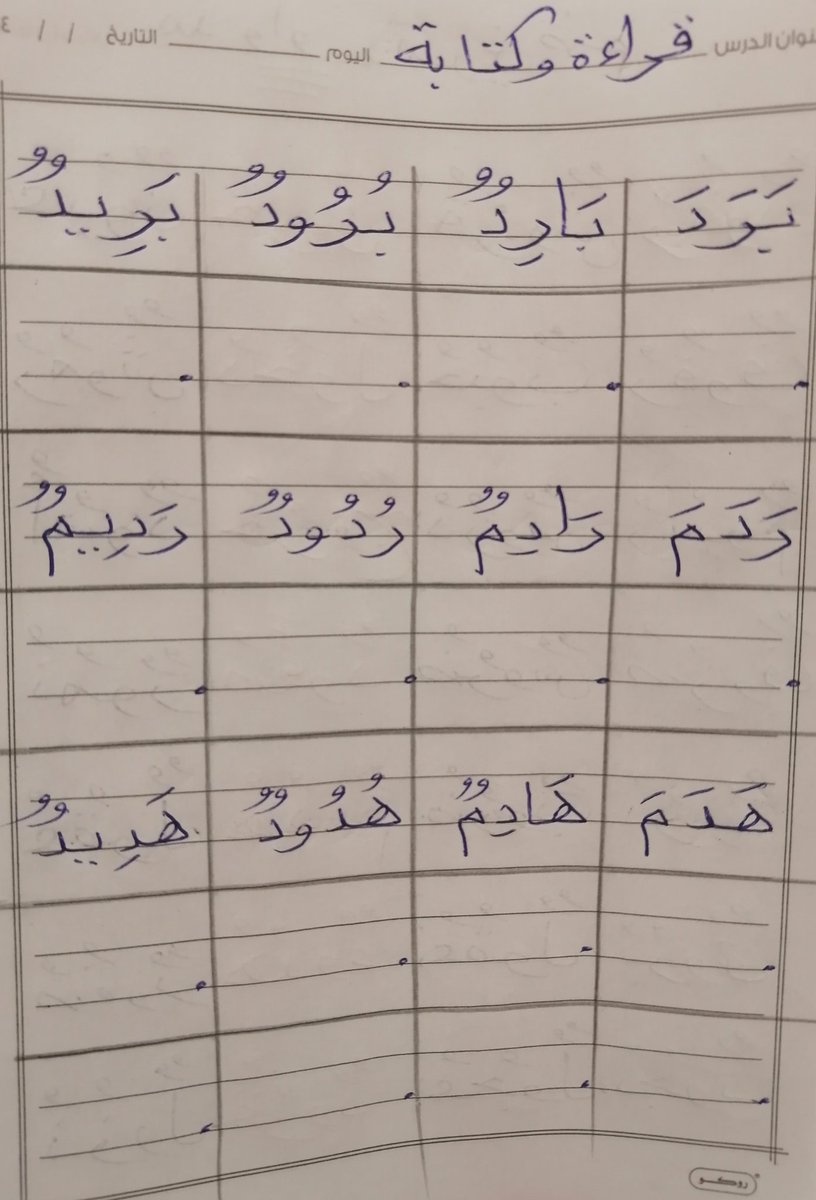 عنوان الدرس قراءة وكتابة اليوم التاريخ / /
بَرَدَ بَارِدٌ بُرُودٌ بَرِيدٌ
رَدَمَ رَادِمٌ رُدُودٌ رَدِيمٌ
هَدَمَ هَادِمٌ هُدُودٌ هَدِيدٌ
روكو